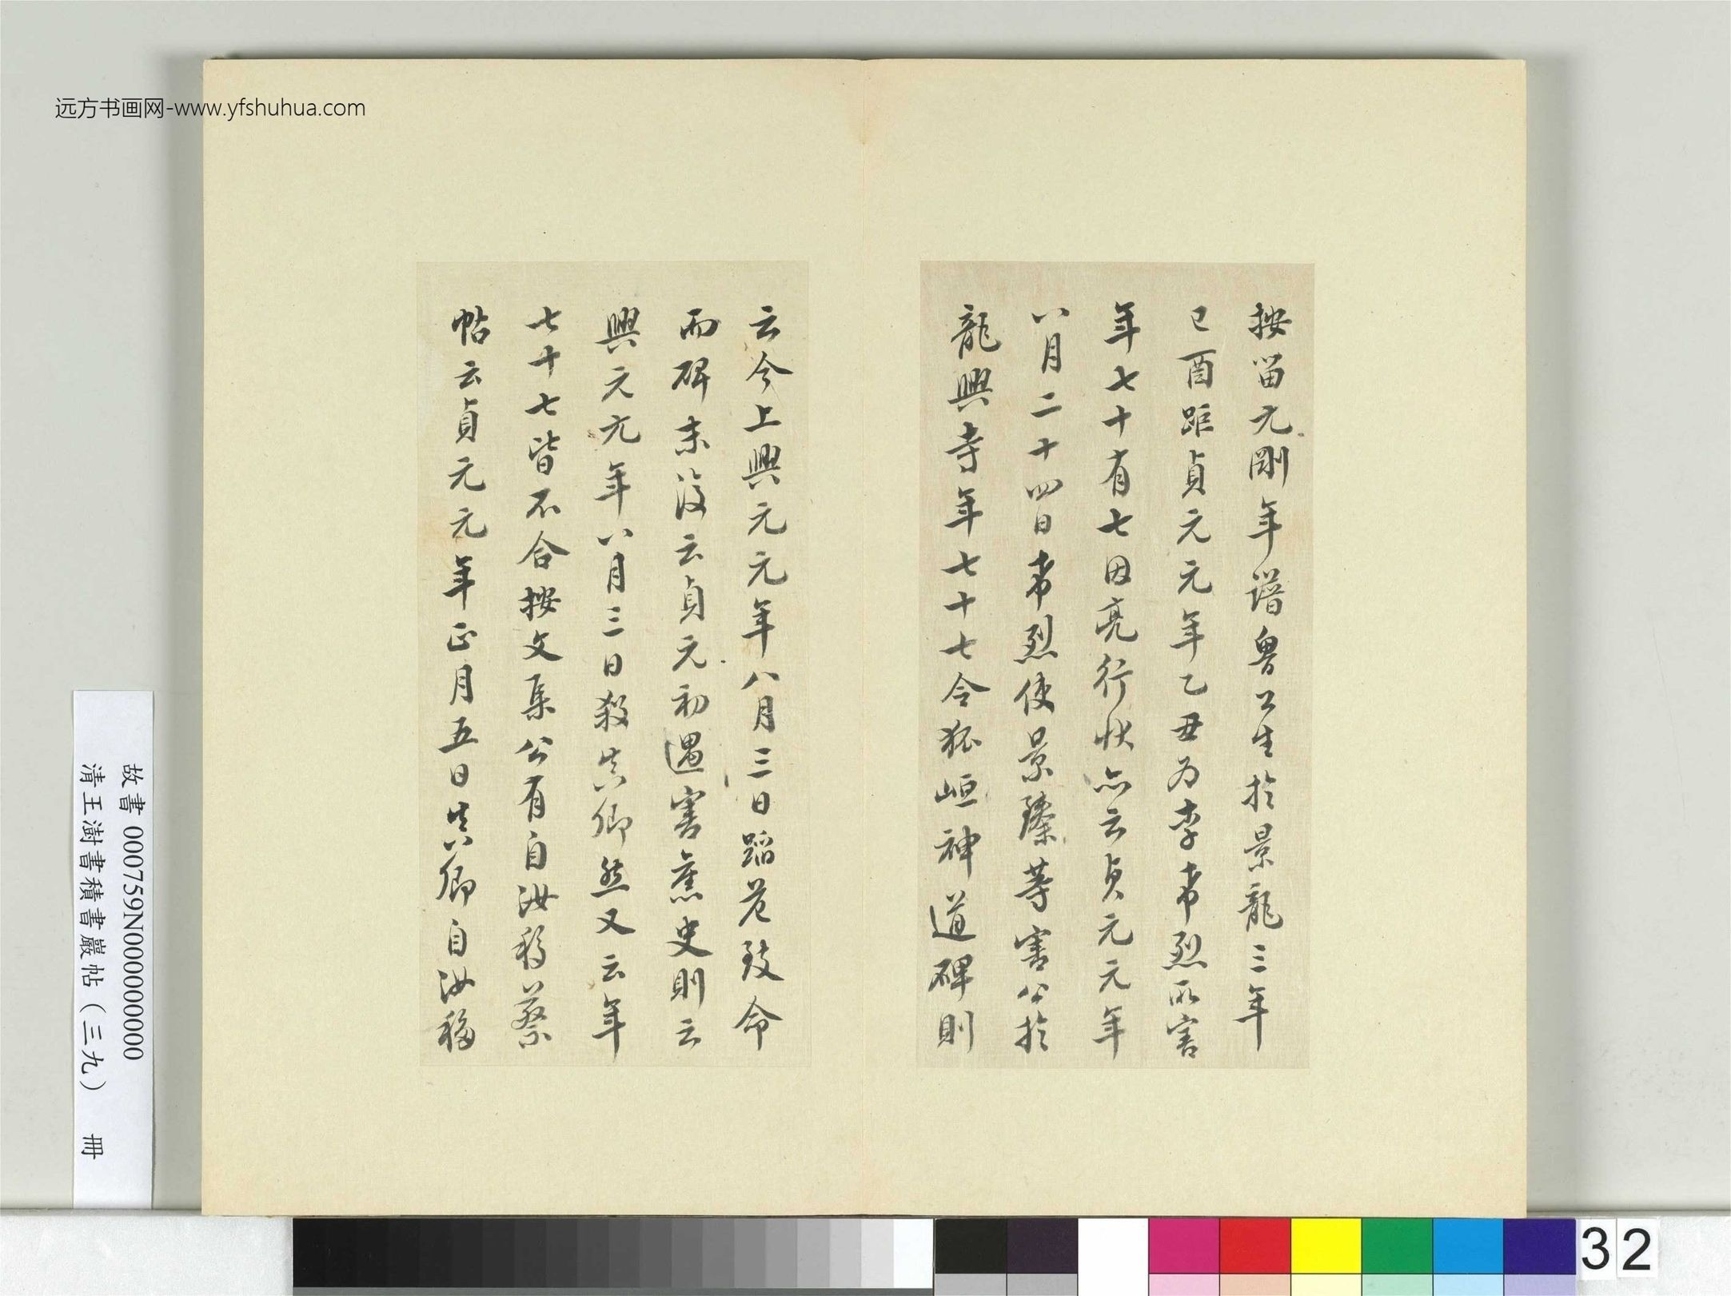 远方书画网-www.yfshuhua.com
按留元剛年譜魯公生於景龍三年
己酉距貞元元年乙丑为李希烈所害
年七十有七因亮行狀亦云貞元元年
八月二十四日希烈使景臻等害公於
龍興寺年七十七令狐峘神道碑則
云今上興元元年八月三日蹈危致命
而碑末後云貞元初遇害舊史則云
興元元年八月三日殺真卿然又云年
七十七皆不合按文集公有自汝移蔡
帖云貞元元年正月五日真卿自汝移
故書 000759N000000000
清王澍書積書巖帖（三九） 冊
32